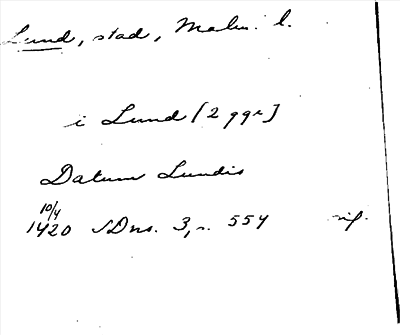 Lund, stad, Malm. l.
i Lund [2 ggr]
Datum Lundis
10/4
1420 SDns. 3, s. 554